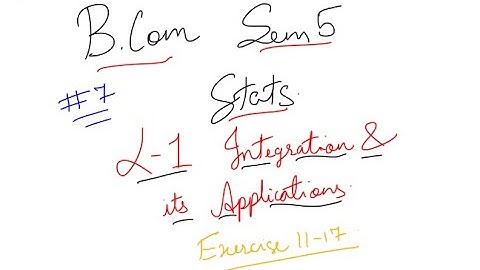 B.Com Sem 5
#7
Stats
L-1 Integration &
its Applications.
Exercise 11-17